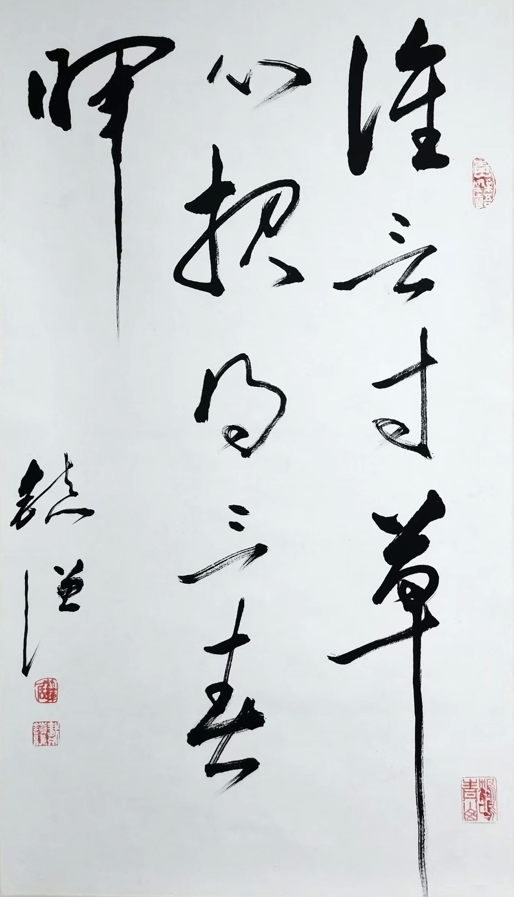 谁言寸草
心报得三春
晖